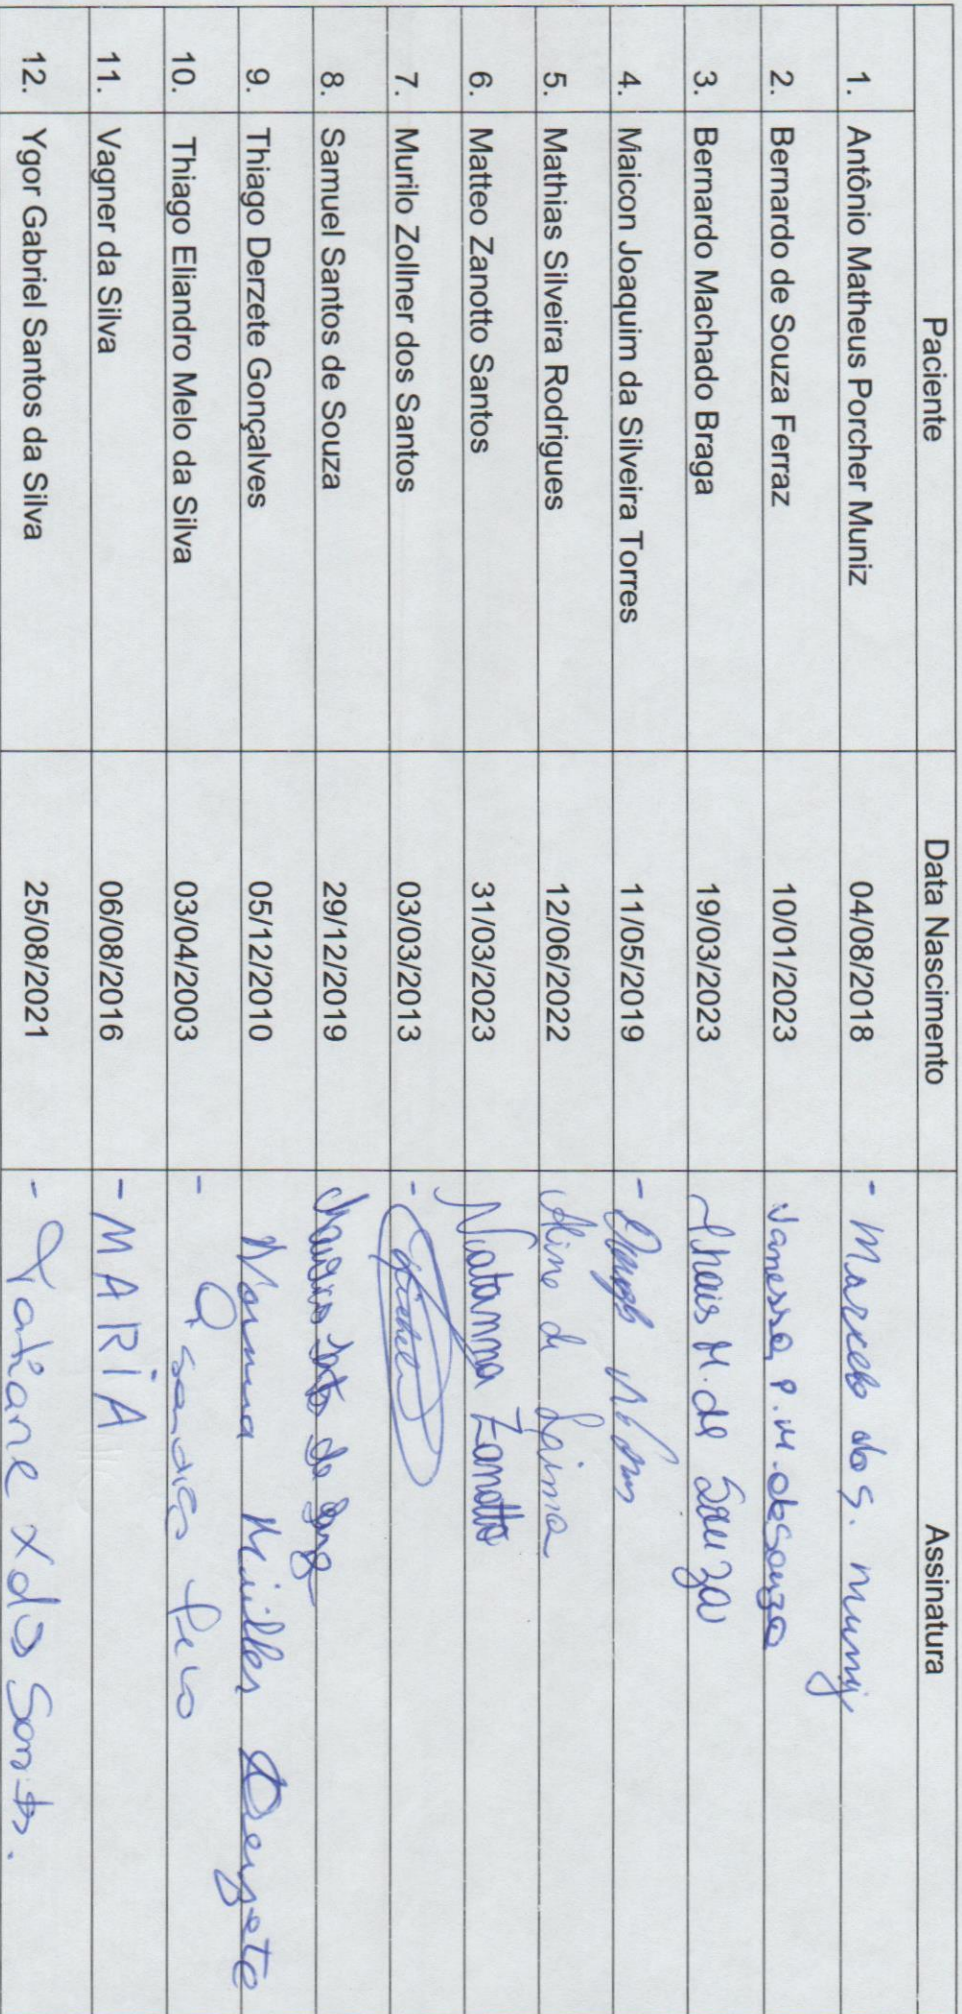 Paciente Data Nascimento Assinatura
1. Antônio Matheus Porcher Muniz 04/08/2018 - Marcelo do S. Muniz
2. Bernardo de Souza Ferraz 10/01/2023 Vanessa P. M. de Souza
3. Bernardo Machado Braga 19/03/2023 Thais M. de Souza
4. Maicon Joaquim da Silveira Torres 11/05/2019 -
5. Mathias Silveira Rodrigues 12/06/2022 Aline de
6. Matteo Zanotto Santos 31/03/2023 Natanna Zanotto
7. Murilo Zollner dos Santos 03/03/2013 -
8. Samuel Santos de Souza 29/12/2019
9. Thiago Derzete Gonçalves 05/12/2010 Norma Müller Derzete
10. Thiago Eliandro Melo da Silva 03/04/2003 -
11. Vagner da Silva 06/08/2016 - MARIA
12. Ygor Gabriel Santos da Silva 25/08/2021 - Tatiane X dos Santos.